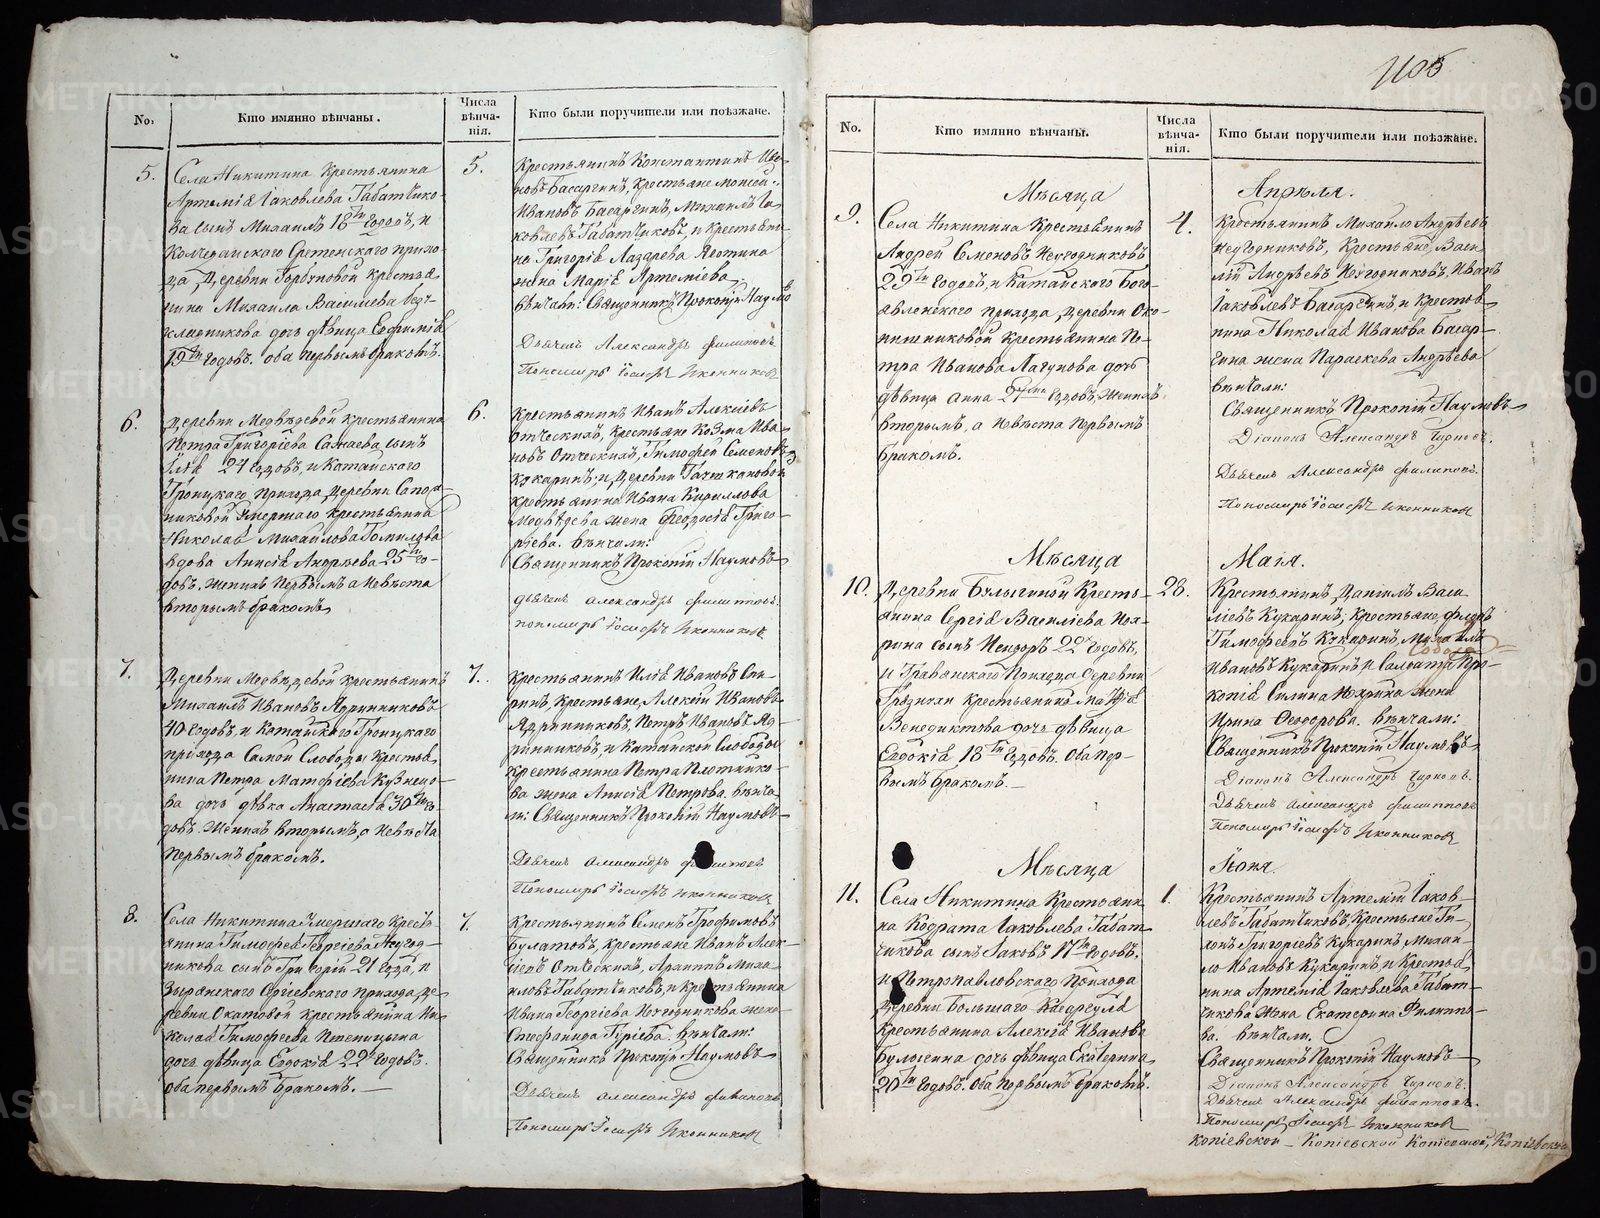 1105
No:
Кто имянно вѣнчаны.
Числа
вѣнча-
нія.
Кто были поручители или поѣзжане.
5.
Села Никитина Крестьянина
Артемія Іаковлева Габатчико-
ва сынъ Михаилъ 18ти годовъ, и
Колчеданскаго Срѣтенскаго прихо-
да Деревни Горбуновой Крестья-
нина Михаила Василіева
дочь дѣвица Евфимія
19ти годовъ. оба первымъ бракомъ.
5.
Крестьянинъ Константинъ Ива-
новъ Басаргинъ, Крестьяне Моисей
Ивановъ Басаргинъ, Михаилъ Іа-
ковлевъ Габатчиковъ, и Крестьяни-
на Григорія Лазарева
жена Марія Артеміева
вѣнчали: Священникъ Прокопій Наумовъ
Дьячекъ Александръ Филиповъ
Пономарь Іосифъ Иконниковъ
6.
Деревни Медвѣдевой крестьянина
Петра Григоріева сынъ
Илія 24 годовъ, и Катайскаго
Троицкаго прихода Деревни
умершаго крестьянина
Николая Михайлова
вдова Анисія Андреева 25ти го-
довъ. женихъ первымъ а невѣста
вторымъ бракомъ
6.
Крестьянинъ Иванъ Алексіевъ
Отческихъ, крестьяне Козма Ива-
новъ Отческихъ, Тимофей Семеновъ
Кукаринъ, и Деревни
крестьянина Ивана Кириллова
Медвѣдева жена Феодосія Григо-
ріева. вѣнчали:
Священникъ Прокопій Наумовъ
дьячекъ Александръ Филиповъ
пономарь Іосифъ Иконниковъ
7.
Деревни Медвѣдевой крестьянинъ
Михаилъ Ивановъ Ядринниковъ
40 годовъ, и Катайскаго Троицкаго
прихода Самой Слободы крестья-
нина Петра Матфіева Кузнецо-
ва дочь дѣвка Анастасія 30ти го-
довъ. женихъ вторымъ, а невѣста
первымъ бракомъ.
7.
Крестьянинъ Илія Ивановъ
Крестьяне, Алексій Ивановъ
Ядринниковъ, Петръ Ивановъ Яд-
ринниковъ, и Катайской Слободы
крестьянина Петра Плотнико-
ва жена Анисія Петрова. вѣнча-
ли: Священникъ Прокопій Наумовъ
Дьячекъ Александръ Филиповъ
Пономарь Іосифъ Иконниковъ
8.
Села Никитина умершаго Кресть-
янина Тимофея Георгіева Негод-
никова сынъ Григорій 21 года, и
Зырянскаго Сергіевскаго прихода, де-
ревни Окатовой крестьянина Ни-
колая Тимофеева
дочь дѣвица Евдокія 22х годовъ.
оба первымъ бракомъ.
7.
Крестьянинъ Семенъ Трофимовъ
Булатовъ, крестьяне Иванъ Алек-
сіевъ Отческихъ, Архиппъ Миха-
иловъ Габатчиковъ, и Крестьянина
Ивана Георгіева Негодникова жена
Стефанида Гуріева. вѣнчали:
Священникъ Прокопій Наумовъ
Дьячекъ Александръ Филиповъ
Пономарь Іосифъ Иконниковъ
No.
Кто имянно вѣнчаны.
Числа
вѣнча-
нія.
Кто были поручители или поѣзжане.
Мѣсяца
Апрѣля.
9.
Села Никитина Крестьянинъ
Андрей Семеновъ Негодниковъ
29ти годовъ, и Катайскаго Бого-
явленскаго прихода, Деревни Око-
нишниковой Крестьянина Пе-
тра Иванова Лагунова дочь
дѣвица Анна годовъ, женихъ
вторымъ, а невѣста первымъ
бракомъ.
4.
Крестьянинъ Михайло Андреевъ
Негодниковъ, Крестьяне, Васи-
лій Андреевъ Негодниковъ, Иванъ
Іаковлевъ Басаргинъ, и Крестья-
нина Николая Иванова Басар-
гина жена Параскева Андреева
вѣнчали:
Священникъ Прокопій Наумовъ
Діаконъ Александръ
Дьячекъ Александръ Филиповъ.
Пономарь Іосифъ Иконниковъ
Мѣсяца
Маія.
10.
Деревни Булыгиной Кресть-
янина Сергія Василіева
сынъ Исидоръ 22х годовъ,
и Травянскаго прихода деревни
Грязнухи Крестьянина
Венедиктова дочь дѣвица
Евдокія 18ти годовъ. Оба пер-
вымъ бракомъ.
28.
Крестьянинъ Даніилъ Васи-
ліевъ Кукаринъ, Крестьяне,
Тимофеевъ Кукаринъ, Михаилъ
Ивановъ Кукаринъ, и Солдата Про-
копія Силина жена
Ирина Феодорова. вѣнчали:
Священникъ Прокопій Наумовъ
Діаконъ Александръ
Дьячекъ Александръ Филиповъ
Пономарь Іосифъ Иконниковъ
Мѣсяца
Іюня.
11.
Села Никитина Крестьяни-
на Кодрата Іаковлева Габат-
чикова сынъ Іаковъ 17ти годовъ,
и Петропавловскаго прихода
деревни Большаго
Крестьянина Алексія Иванова
Булыгина дочь дѣвица Екатерина
20ти годовъ. Оба первымъ бракомъ.
1.
Крестьянинъ Артемій Іаков-
левъ Габатчиковъ, Крестьяне Ти-
хонъ Григоріевъ Кукаринъ, Михаи-
ло Ивановъ Кукаринъ, и Крестья-
нина Артемія Іаковлева Габат-
чикова жена Екатерина Филиппо-
ва. вѣнчали.
Священникъ Прокопій Наумовъ
Діаконъ Александръ
Дьячекъ Александръ Филиповъ.
Пономарь Іосифъ Иконниковъ